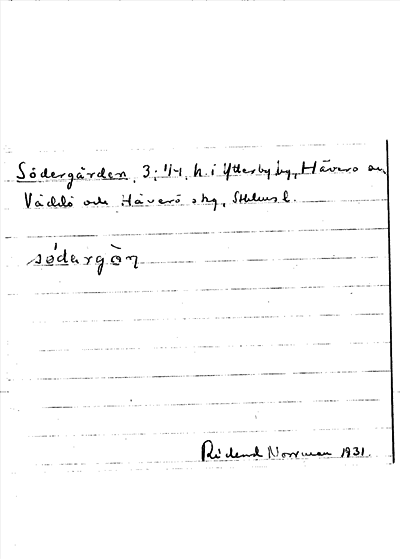 Södergården, 3; 1/4, h. i Ytterby by, Häverö sn,
Väddö och Häverö skg, Sthlms l.
södərgȯ̀n
Rickard Norrman 1931.